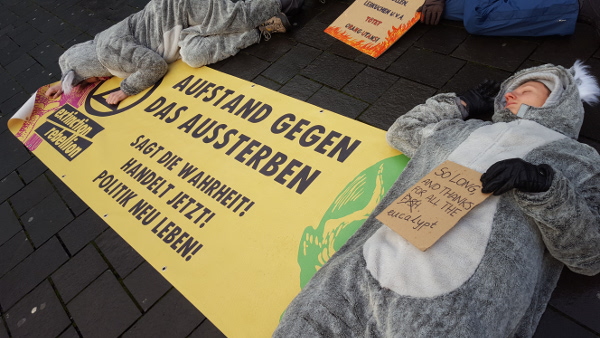 LEIBCHEN U.V.A
TÖTET
ORANG-UTANS!
extinction
rebellion
AUFSTAND GEGEN
DAS AUSSTERBEN
SAGT DIE WAHRHEIT!
HANDELT JETZT!
POLITIK NEU LEBEN!
SO LONG,
AND THANKS
FOR ALL THE
eucalypt